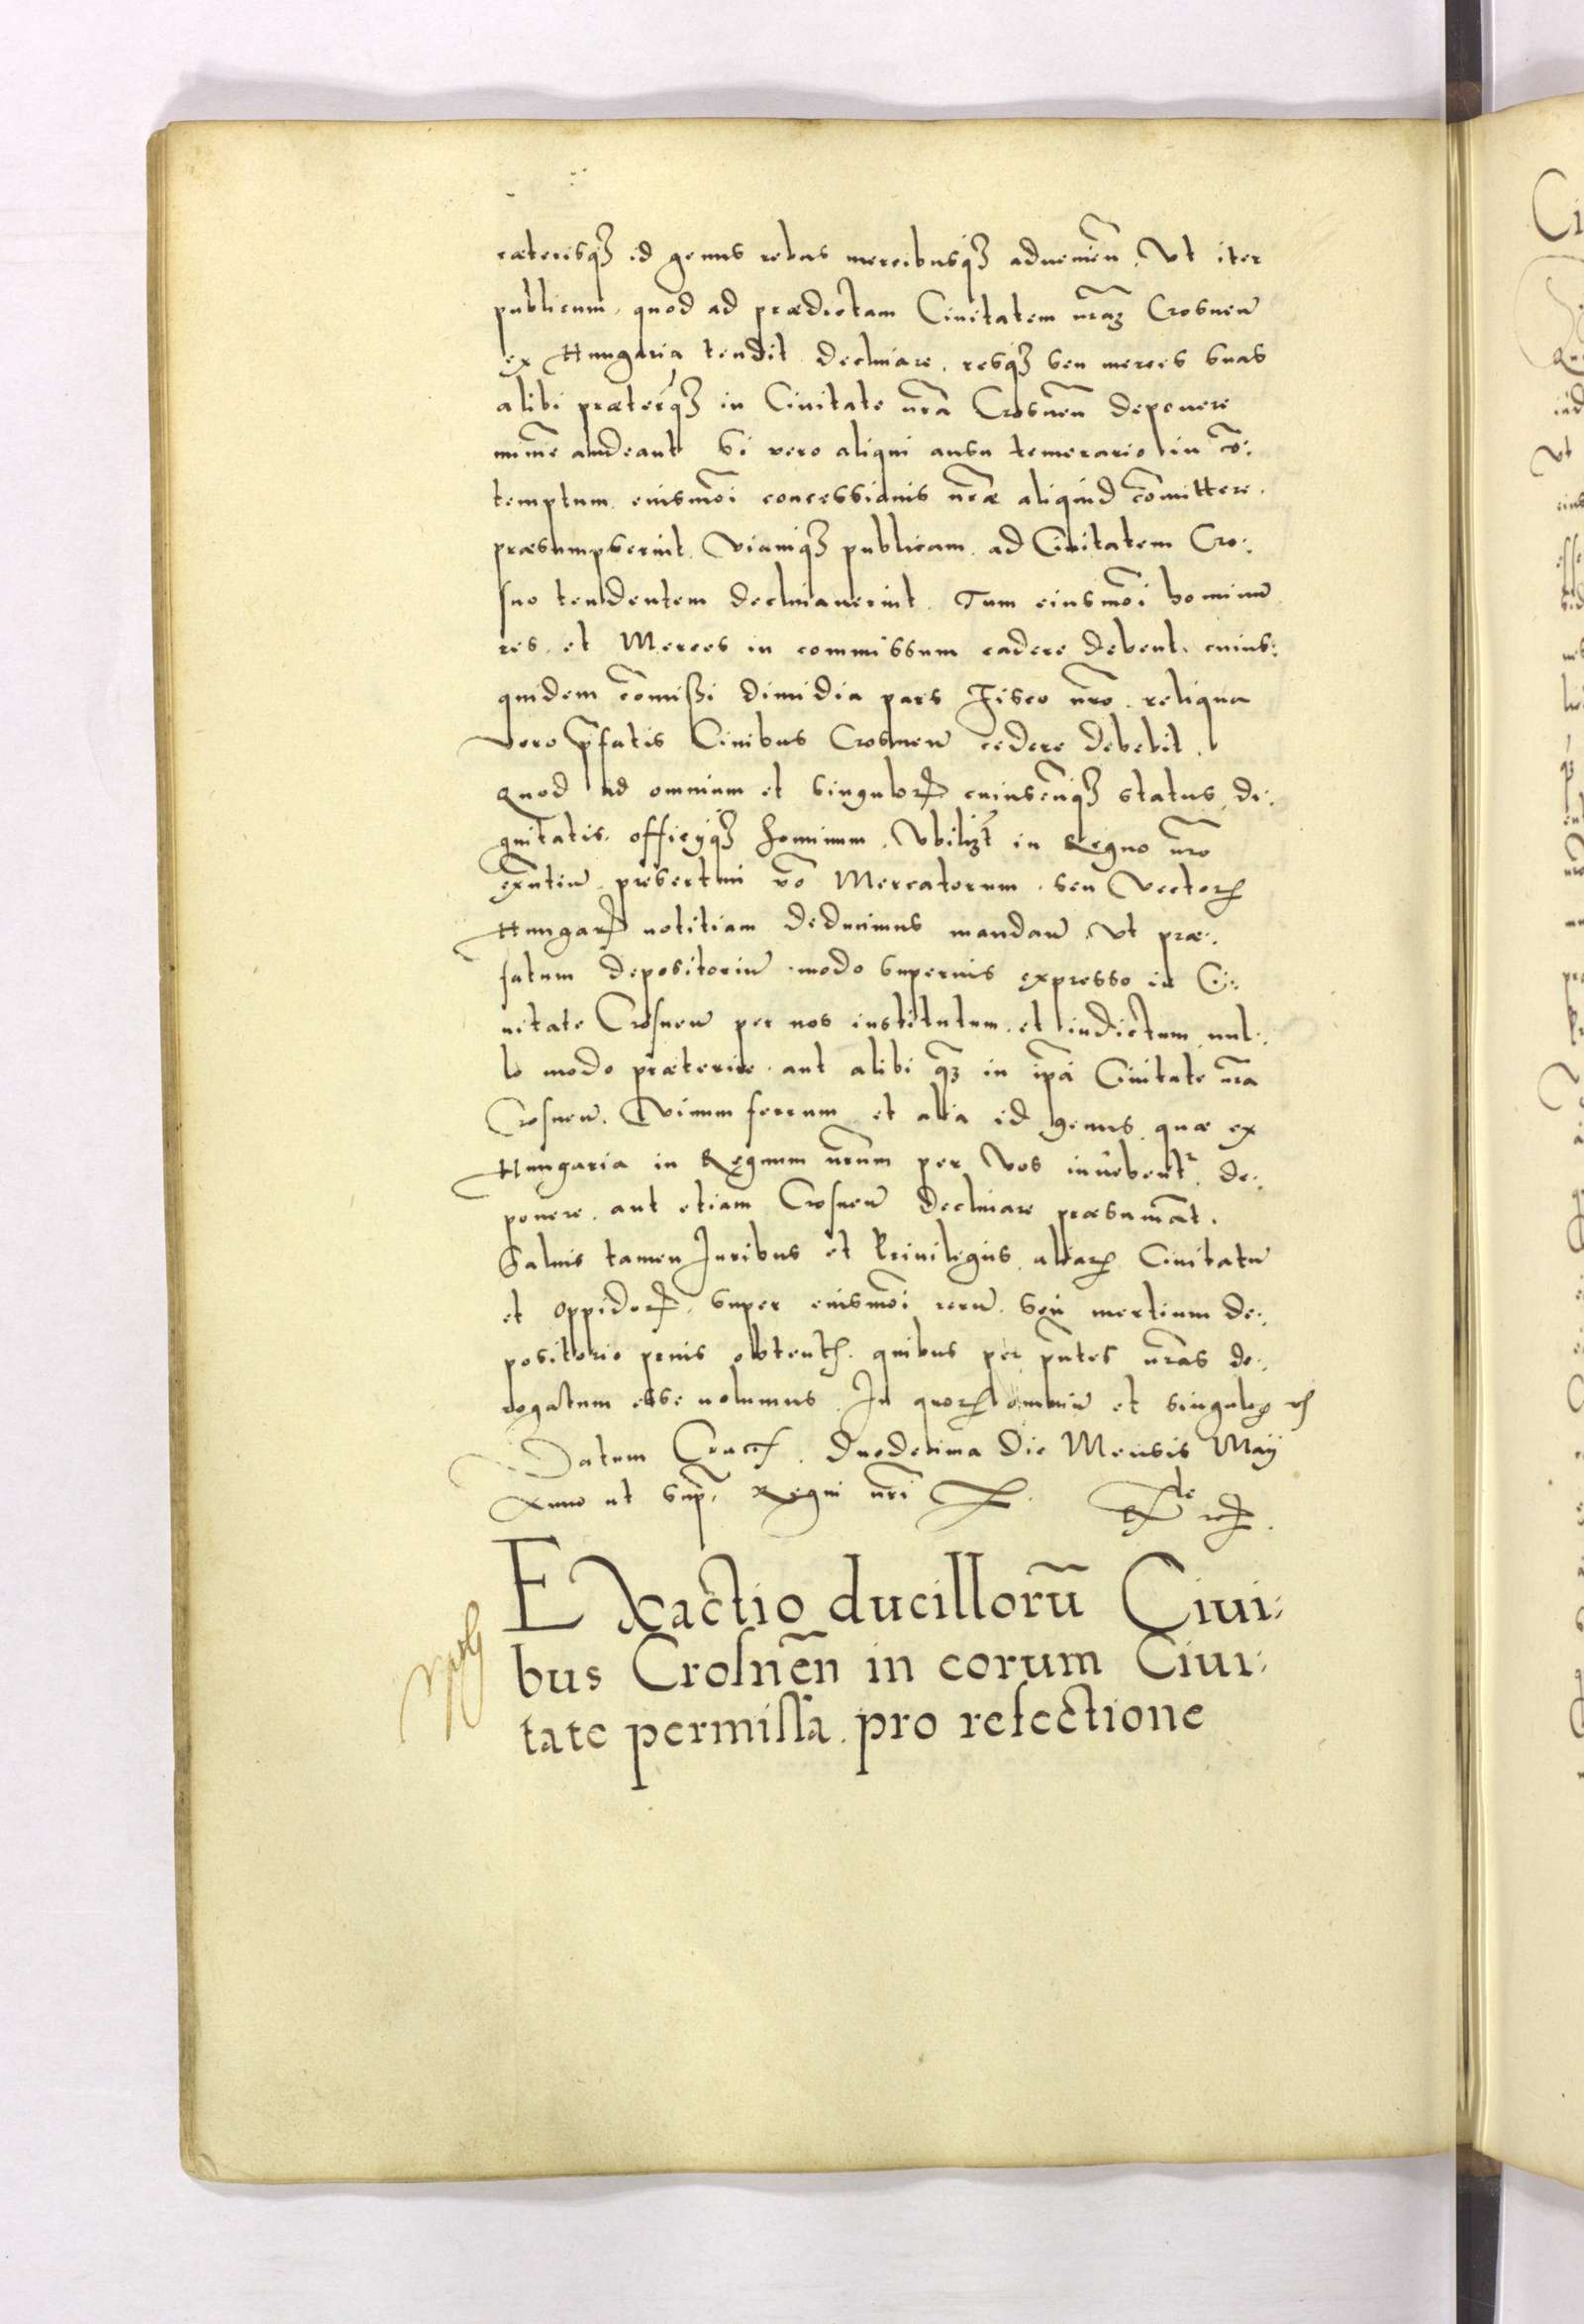 cæterisq₃ id genus rebus mercibusq₃ aduenien̄. Vt iter
publicum, quod ad prædictam Ciuitatem nr̄az Crosnen̄
ex Hungaria tendit declinare, resq₃ seu merces suas
alibi præterq₃ in Ciuitate nr̄a Crosnen̄ deponere
minime audeant Si vero aliqui ausu temerario in cō:
temptum eiusmōi concessionis nr̄æ aliquid cōmittere.
præsumpserint. Viamq₃ publicam ad Ciuitatem Cro:
sno tendentem declinauerint. Tum eiusmōi hominū
res. et Merces in commissum cadere debent. cuius:
quidem cōmissi dimidia pars Fisco nr̄o. reliqua
vero p̄fatis Ciuibus Crosnen̄ cedere debebit.
Quod ad omnium et singulorꝝ cuiuscūq₃ status, di:
gnitatis. officijq₃ hominum. Vbilizt in Regno nr̄o
exn̄tiū presertim vō Mercatorum. seu Vectorꝝ
Hungarꝝ notitiam deducimus mandan̄. Vt præ:
fatum depositoriū modo superius expresso in Ci:
uitate Crosnen̄ per nos institutum. et indictum nul:
lo modo præterire. aut alibi q₃ in ip̄a Ciuitate nr̄a
Crosnen̄. Vinum ferrum et alia id genus quæ ex
Hungaria in Regnum nr̄um per Vos inuehentr. de:
ponere. aut etiam Crosnen̄ declinare præsumāt.
Saluis tamen Iuribus et Priuilegiis aliarꝝ Ciuitatū
et oppidorꝝ. super eiusmōi rerū. seu mertium de:
positorio prius obtentꝭ. quibus per p̄ntes nr̄as de:
rogatum esse nolumus. In quorꝝ omniū et singulorꝝ
Datum Cracꝭ. Duodecima die Mensis Maij
Anno ut sup̄. Regni nr̄i
EXactio ducillorū Ciui:
bus Crosnēn in eorum Ciui:
tate permissa. pro refectione